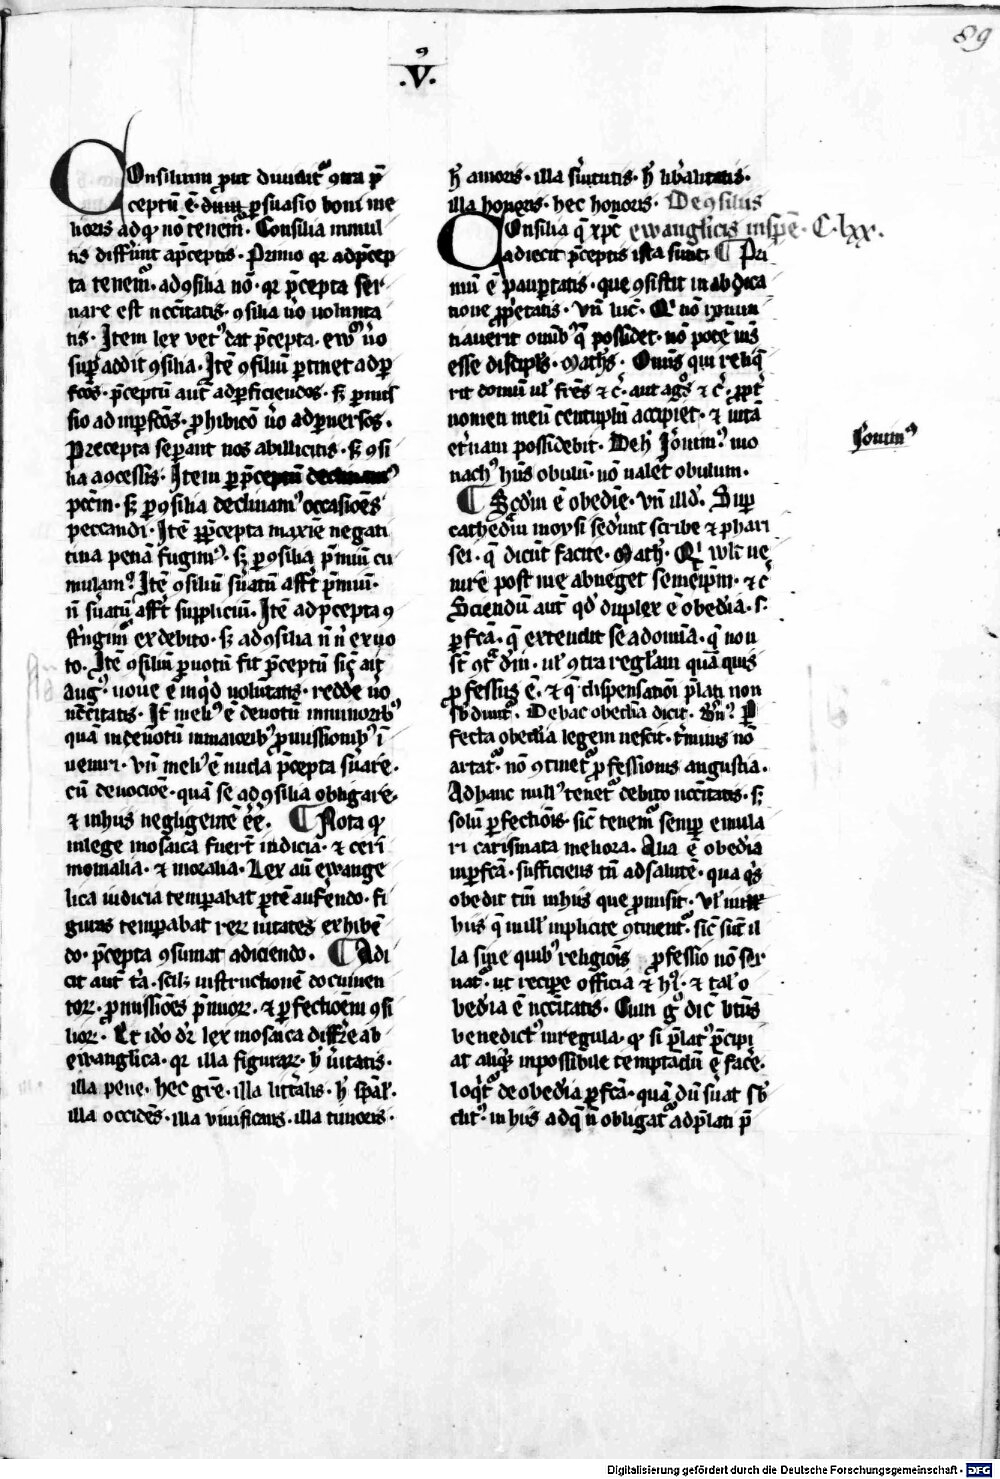 89
.V.
COnsilium prout dividit᷑ ꝯtra p̄
ceptū ē· dum ꝑsuasio boni me
lioris ad qͥ nō tenem᷑· Consilia in mul
tis differūt a p̄ceptis· Primo qꝛ ad p̄cep
ta tenem᷑· ad ꝯsilia nō· qꝛ p̄cepta ser
uare est nēcitatis· ꝯsilia ūo volunta
tis· Item lex vetꝰ dat p̄cepta· ew᷑ ūo
suꝑaddit ꝯsilia· Itē ꝯsiliū ꝑtinet ad ꝑ
fcōs· p̄ceptū aut̄ ad ꝑficiendos· sꝫ ꝑmis
sio ad inꝑfcōs· ꝓhibicō ūo ad ꝑuersos·
Precepta seꝑant nos ab illicitis· sꝫ ꝯsi
lia a ꝯcessis· Item ꝑ p̄ceptum declinamꝰ
pcc̄m· sꝫ ꝑ ꝯsilia declinamꝰ occasiōes
peccandi· Itē ꝑ p̄cepta maxie negati
tiua penā fugimꝰ· sꝫ ꝑ ꝯsilia p̄miū cu
mulamꝰ· Itē ꝯsiliū s̄uatū aff̄t p̄miū·
n̄ s̄uatū aff̄t suppliciū· Itē ad p̄cepta ꝯ
st̄ngim᷑ ex debito· sꝫ ad ꝯsilia n̄ n̄ ex uo
to· Itē ꝯsiliū ꝑ uotū fit p̄ceptū sic̄ ait
Augꝰ· uoue ē inq̄d uolūtatis· redde ūo
nēcc̄itatis· It̄ meliꝰ ē deuotū in minoribꝰ
quā indeuotū in maioribꝰ ꝓmissionibꝰ ī
ueniri· vn̄ meliꝰ ē nuda p̄cepta s̄uare·
cū deuocioē· quā se ad ꝯsilia obligare·
⁊ in hiis negligentē ēē· ¶ Nota qͥ
in lege mosaica fuer̄t iudicia· ⁊ ceri
monialia· ⁊ moralia· Lex aū ewange
lica iudicia temꝑabat ꝑtē aufēndo· fi
guras temꝑabat reꝝ ūitates exhibēn
do· p̄cepta ꝯsumat adiciendo· ¶ Adi
cit aut̄ t̄a· scilꝫ instructionē documen
toꝝ· ꝓmissiōes p̄mioꝝ· ⁊ ꝑfectioēm ꝯsi
lioꝝ· Et ido dr̄ lex mosaica diffr̄e ab
ewanglica· qꝛ illa figuraꝝ· h̄ ūitatis·
illa pene· hec gr̄e· illa litt̄alis· h̄ sp̄al̄·
illa occidēs· illa viuificans· illa timoris·
h̄ amoris· illa s̄uitutis· h̄ lib̄alitatis·
illa honoris· hec honoris· De ꝯsiliis
ewanglicis in spē· C· lxx·
COnsilia q̄ xp̄c
adiecit p̄ceptis ista sunt· ¶ Pri
mū ē pauꝑtatis· que ꝯsistit in abdica
tione ꝓp̄etatis· vn̄ luc̄· Qͥ nō renun
tiauerit omībꝰ q̄ possidet· nō potē m̄s
esse discipl̄s· Mathꝰ· Omīs qui reliq̄
rit domū ul̓ fr̄es ⁊ c̄· aut agꝰ ⁊ c̄· ꝓpt̄
nomen meū centuplū accipiet· ⁊ uitā
et̄nam possidebit· De h̄ Ieronimꝰ mo
nachꝰ hn̄s obulū· nō ualet obulum·
Ieronimꝰ
¶ Scd̄m ē obediē· vn̄ illd̄· Suꝑ
cathedrā moysi sed̄unt scribe ⁊ phari
sei· q̄ dicūt facite· Math̄· Qͥ wlt ue
nire post me abneget semeip̄m· ⁊ c̄
Sciendū aut̄ qd̓ duplex ē obed̄ia· s·
ꝑfc̄a· q̄ extendit se ad omīa· q̄ non
st̄ ꝯt᷑ dm̄· ul̓ ꝯtra reglam quā quis
ꝓfessus ē· ⁊ q̄ dispensationi p̄lati non
sb̄dunt᷑· De hac obediā dicit· B̄nꝰ· P
fecta obed̄ia legem nescit· t̄minis nō
artat᷑· nō ꝯtinet᷑ ꝓfessionis angustia·
Ad hanc nullꝰ tenet᷑ debito nc̄citatis· sꝫ
solū ꝑfectiōis· sic̄ tenem᷑ semꝑ emula
ri carismata meliora· Alia ē obed̄ia
inꝑfc̄a· sufficiens tn̄ ad salutē· qua q̓s
obedit tm̄ in hiis que ꝓmisit· Ul̓ in il
hiis q̄ in ill̓ inplicite ꝯtinent᷑· sic̄ sūt il
la sine quibꝰ religionis ꝓfessio nō ser
uat᷑· ut recipe officia ⁊ hꝰ· ⁊ tal̓ o
bed̄ia ē nc̄citatis· Cum gͦ dic̄ bt̄us
benedictꝰ in regula· qͥ si p̄latꝰ p̄cipi
at aliqͥ inpossibile temptādū ē face·
loqͥt᷑ de obed̄ia ꝑfc̄a· quā dū s̄uat sb̄
ditꝰ· in hiis ad q̄ n̄ obligat᷑ ad p̄lati p̄
Digitalisierung gefördert durch die Deutsche Forschungsgemeinschaft · DFG